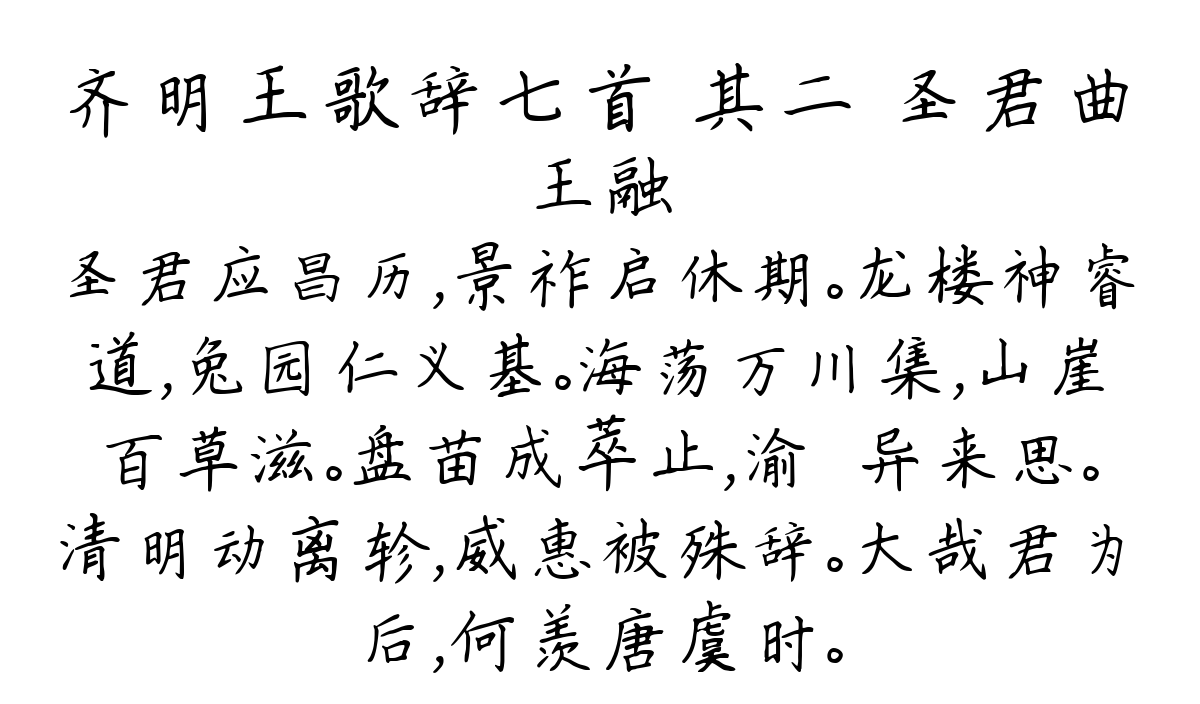 齐明王歌辞七首 其二 圣君曲
王融
圣君应昌历,景祚启休期。龙楼神睿
道,兔园仁义基。海荡万川集,山崖
百草滋。盘苗成萃止,渝 异来思。
清明动离轸,威惠被殊辞。大哉君为
后,何羡唐虞时。